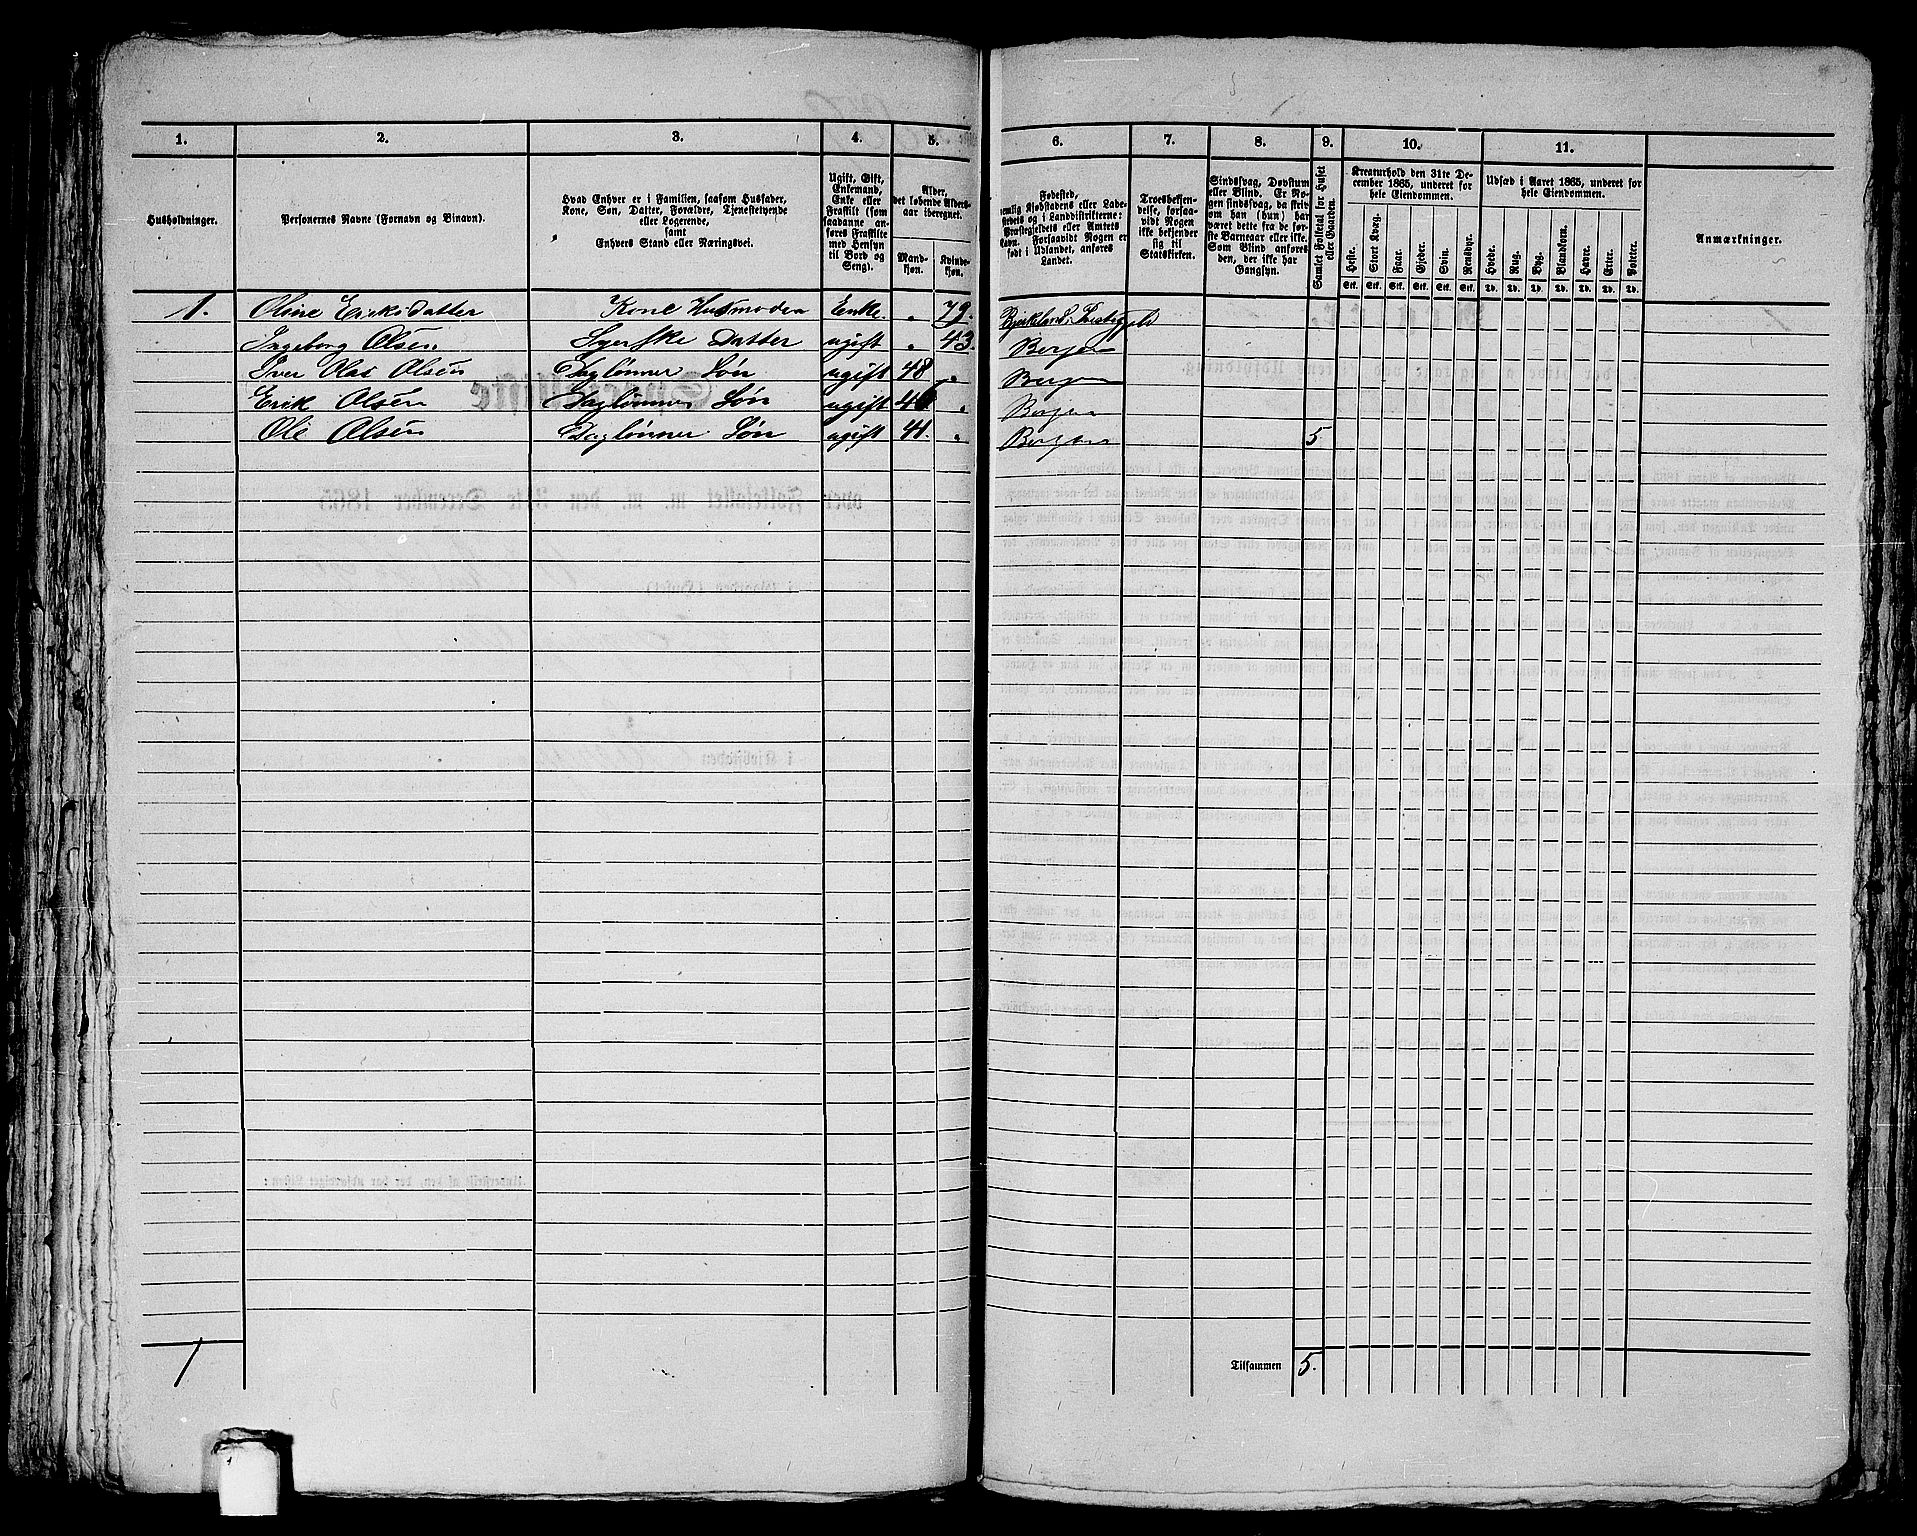 1. 2. 3. 4. 5. 6. 7. 8. 9. 10. 11.
Husholdninger.
Personernes Navne (Fornavn og Binavn).
Hvad Enhver er i Familien, saasom Husfader,
Kone, Søn, Datter, Forældre, Tjenestetyende
eller Logerende,
samt
Enhvers Stand eller Næringsvei.
Ugift, Gift,
Enkemand,
Enke eller
Fraskilt (som
saadanne an-
føres Fraskilte
med Hensyn
til Bord og
Seng).
Alder,
det løbende Alders-
aar iberegnet.
Mand-
kjøn.
Kvinde-
kjøn.
Fødested,
nemlig Kjøbstadens eller Lade-
stedets og i Landdistrikterne:
Præstegjeldets eller Amtets
Navn. Forsaavidt Nogen er
født i Udlandet, anføres
Landet.
Troesbekjen-
delse, forsaa-
vidt Nogen
ikke bekjender
sig til
Statskirken.
Sindssvag, Døvstum
eller Blind. Er No-
gen sindssvag, da skriv
om han (hun) har
været dette fra de før-
ste Barneaar eller ikke.
Som Blind anføres
den, der ikke har
Gangsyn.
Samlet Folketal for Huset
eller Gaarden.
Kreaturhold den 31te De-
cember 1865, underet for
hele Eiendommen.
Heste. Stort Kvæg. Faar. Gjeder. Svin. Rensdyr.
Stk. Stk. Stk. Stk. Stk. Stk.
Udsæd i Aaret 1865, underet for
hele Eiendommen.
Hvede. Rug. Byg. Blandkorn. Havre. Erter. Poteter.
Td. Td. Td. Td. Td. Td. Td.
Anmærkninger.
1. Oline Ericksdatter Kone Husmoder Enke. " 79.
Ingeborg Olsen Datter ugift " 43. Bergen
Iver Olsen Daglønner Søn ugift 48 " Bergen
Erik Olsen Daglønner Søn ugift " Bergen
Ole Olsen Daglønner Søn ugift 41. " Bergen 5
1 Tilsammen 5.